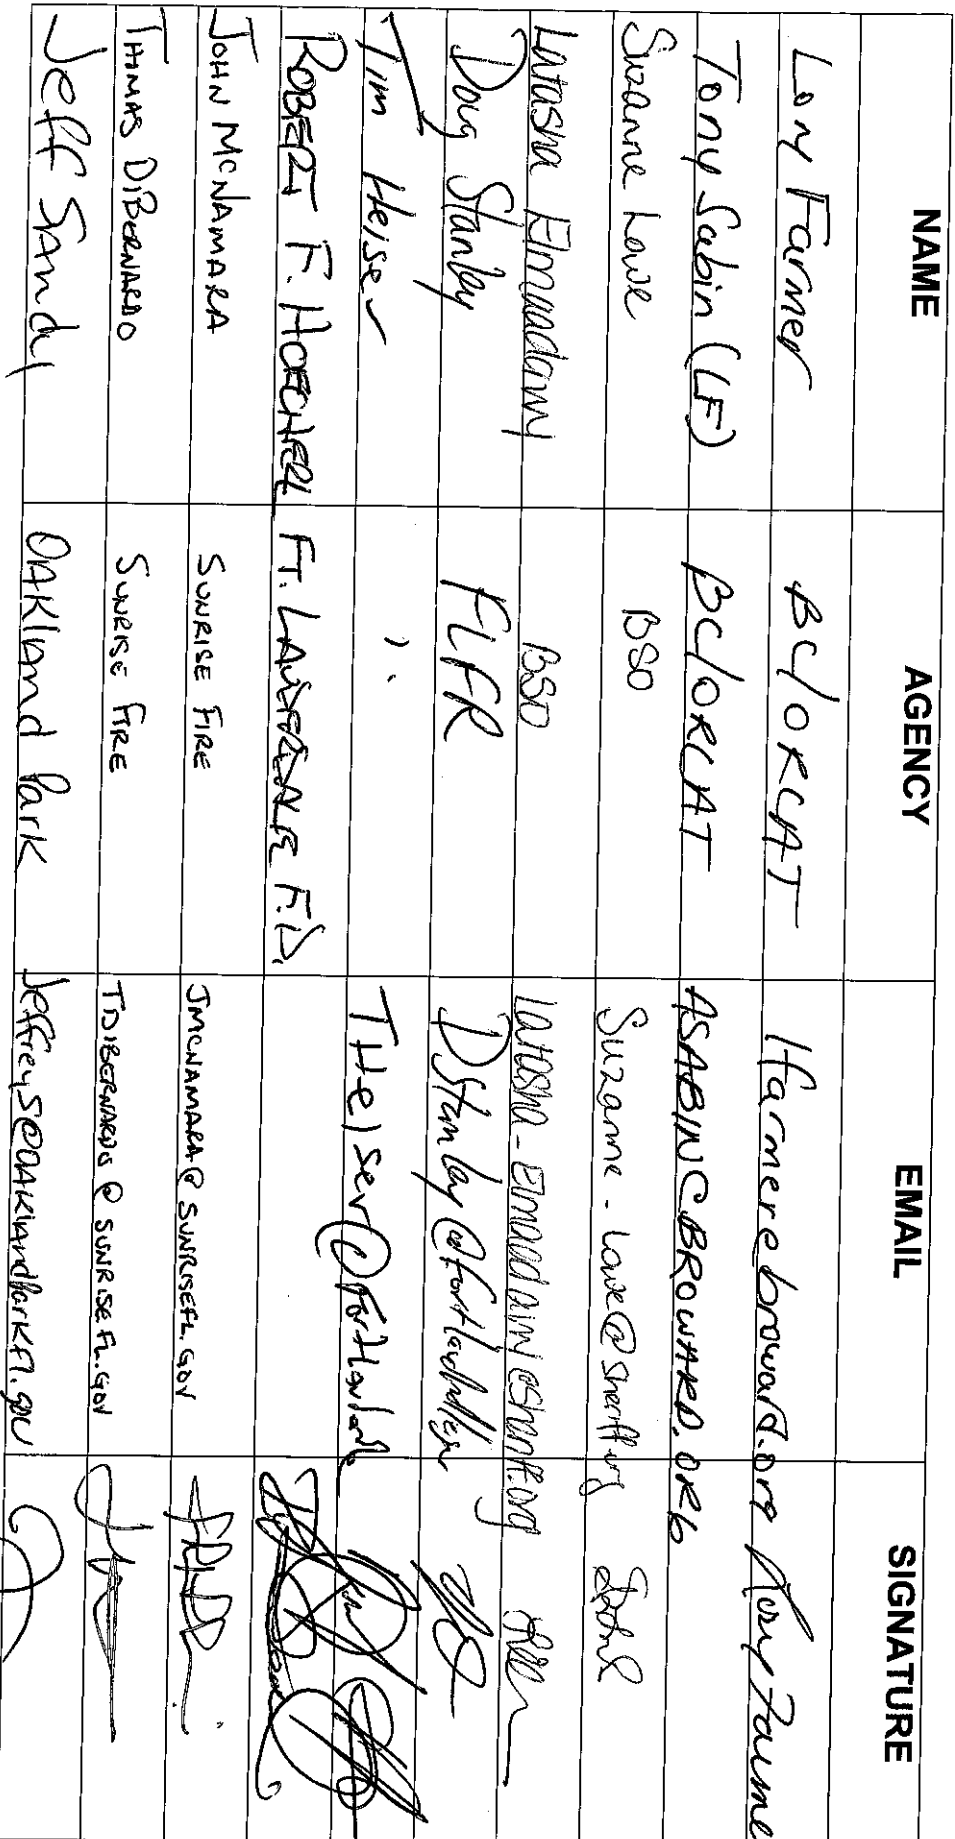 NAME AGENCY EMAIL SIGNATURE
Lory Farmer BC/ORCAT lfarmer@broward.org Lory Farmer
Tony Sabin (LF) BC/ORCAT ASABIN@BROWARD.ORG
Suzanne Lowe BSO Suzanne-Lowe@sheriff.org
Latasha Elmaadawy BSO Latasha-Elmaadawy@sheriff.org
Doug Stanley FLFR DStanley@fortlauderdale
Tim Heiser " THeiser@fortlauderdale
ROBERT F. HOECHERL FT. LAUDERDALE F.D.
JOHN MCNAMARA SUNRISE FIRE JMCNAMARA@SUNRISEFL.GOV
THOMAS DIBERNARDO SUNRISE FIRE TDIBERNARDO@SUNRISEFL.GOV
Jeff Sandy OAKland Park JeffreyS@OAKlandParkFl.gov